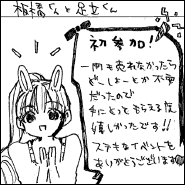 板橋くんと足立くん
初参加!
一冊も売れなかったら
どーしよーとか不安
だったので
手にとってもらえる度
嬉しかったです!!
ステキなイベントを
ありがとうございます